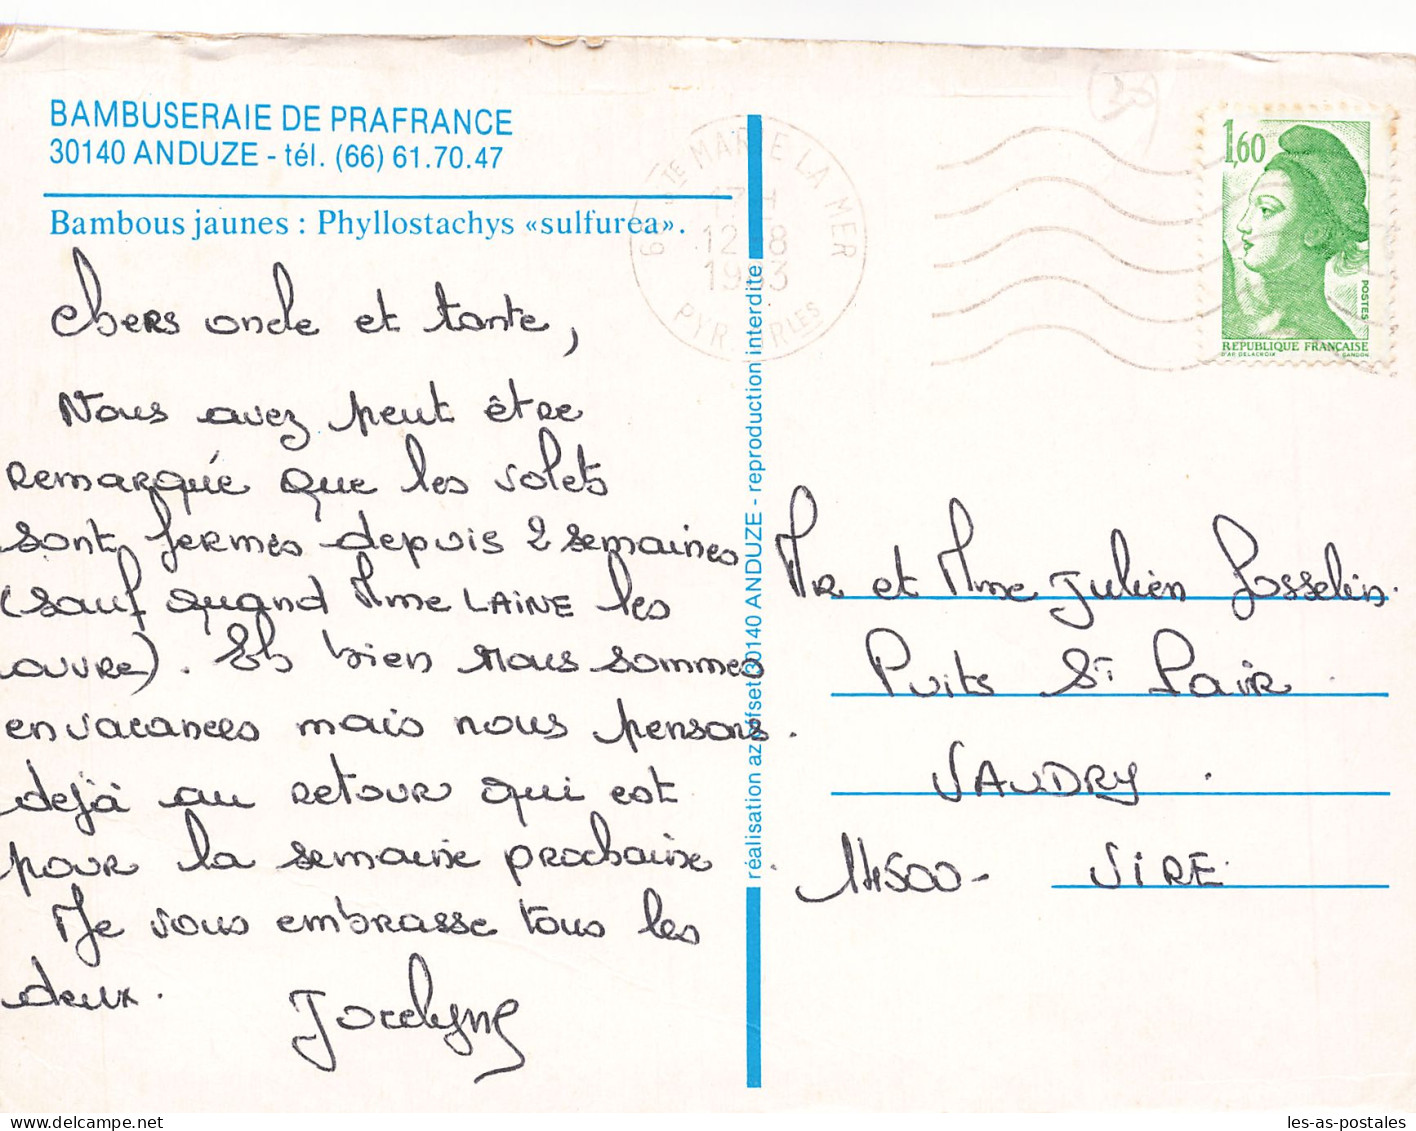 BAMBUSERAIE DE PRAFRANCE
30140 ANDUZE - tél. (66) 61.70.47
Bambous jaunes : Phyllostachys «sulfurea».
Chers oncle et tante,
Vous avez peut être
remarquée que les volets
sont fermés depuis 2 semaines
(sauf quand Mme LAINE les
ouvre). Eh bien nous sommes
en vacances mais nous pensons
déjà au retour qui est
pour la semaine prochaine.
Je vous embrasse tous les
deux.
Jocelyne
réalisation azoffset 30140 ANDUZE - reproduction interdite
66 STE MARIE LA MER
17 H
12 - 8
1983
PYR. ORLES
1,60
POSTES
REPUBLIQUE FRANÇAISE
D'AP. DELACROIX GANDON
Mr et Mme Julien Josselin.
Puits St Lair.
VAUDRY.
14500 - VIRE
les-as-postales